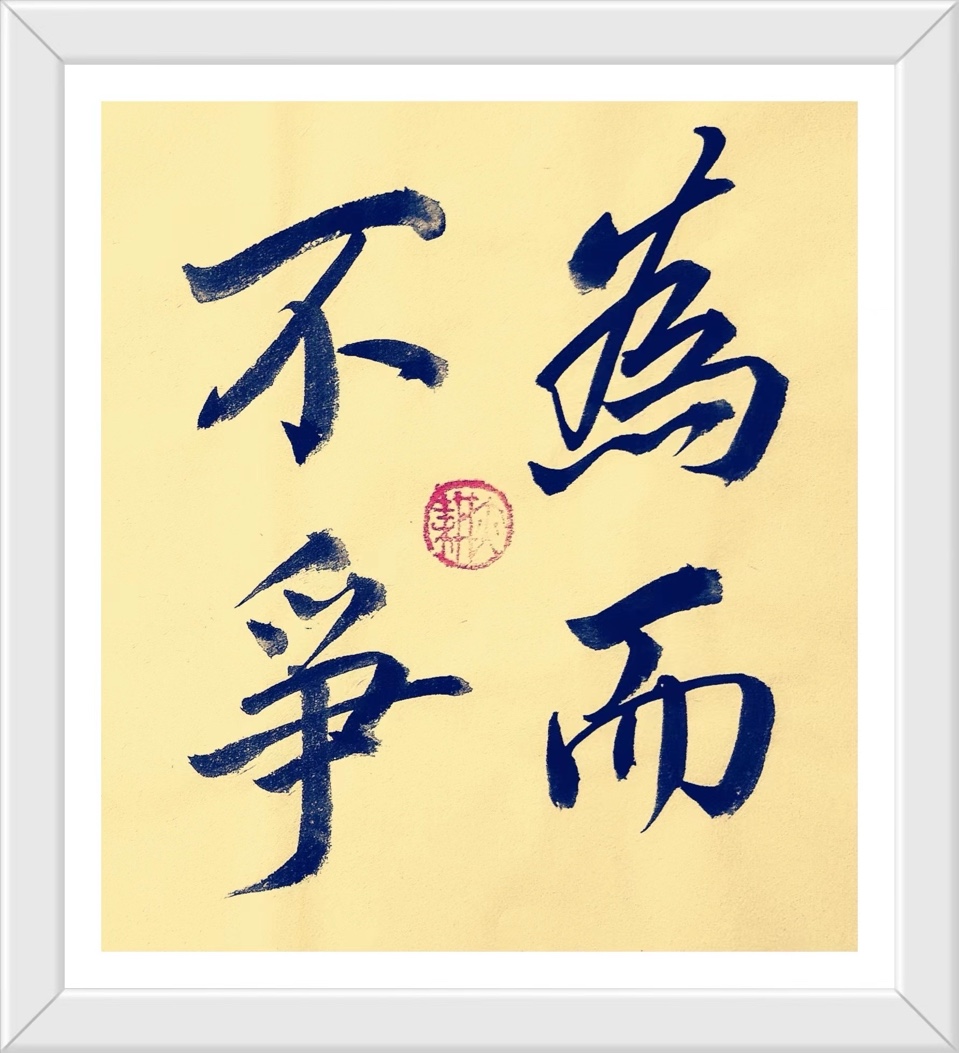 為而
不爭